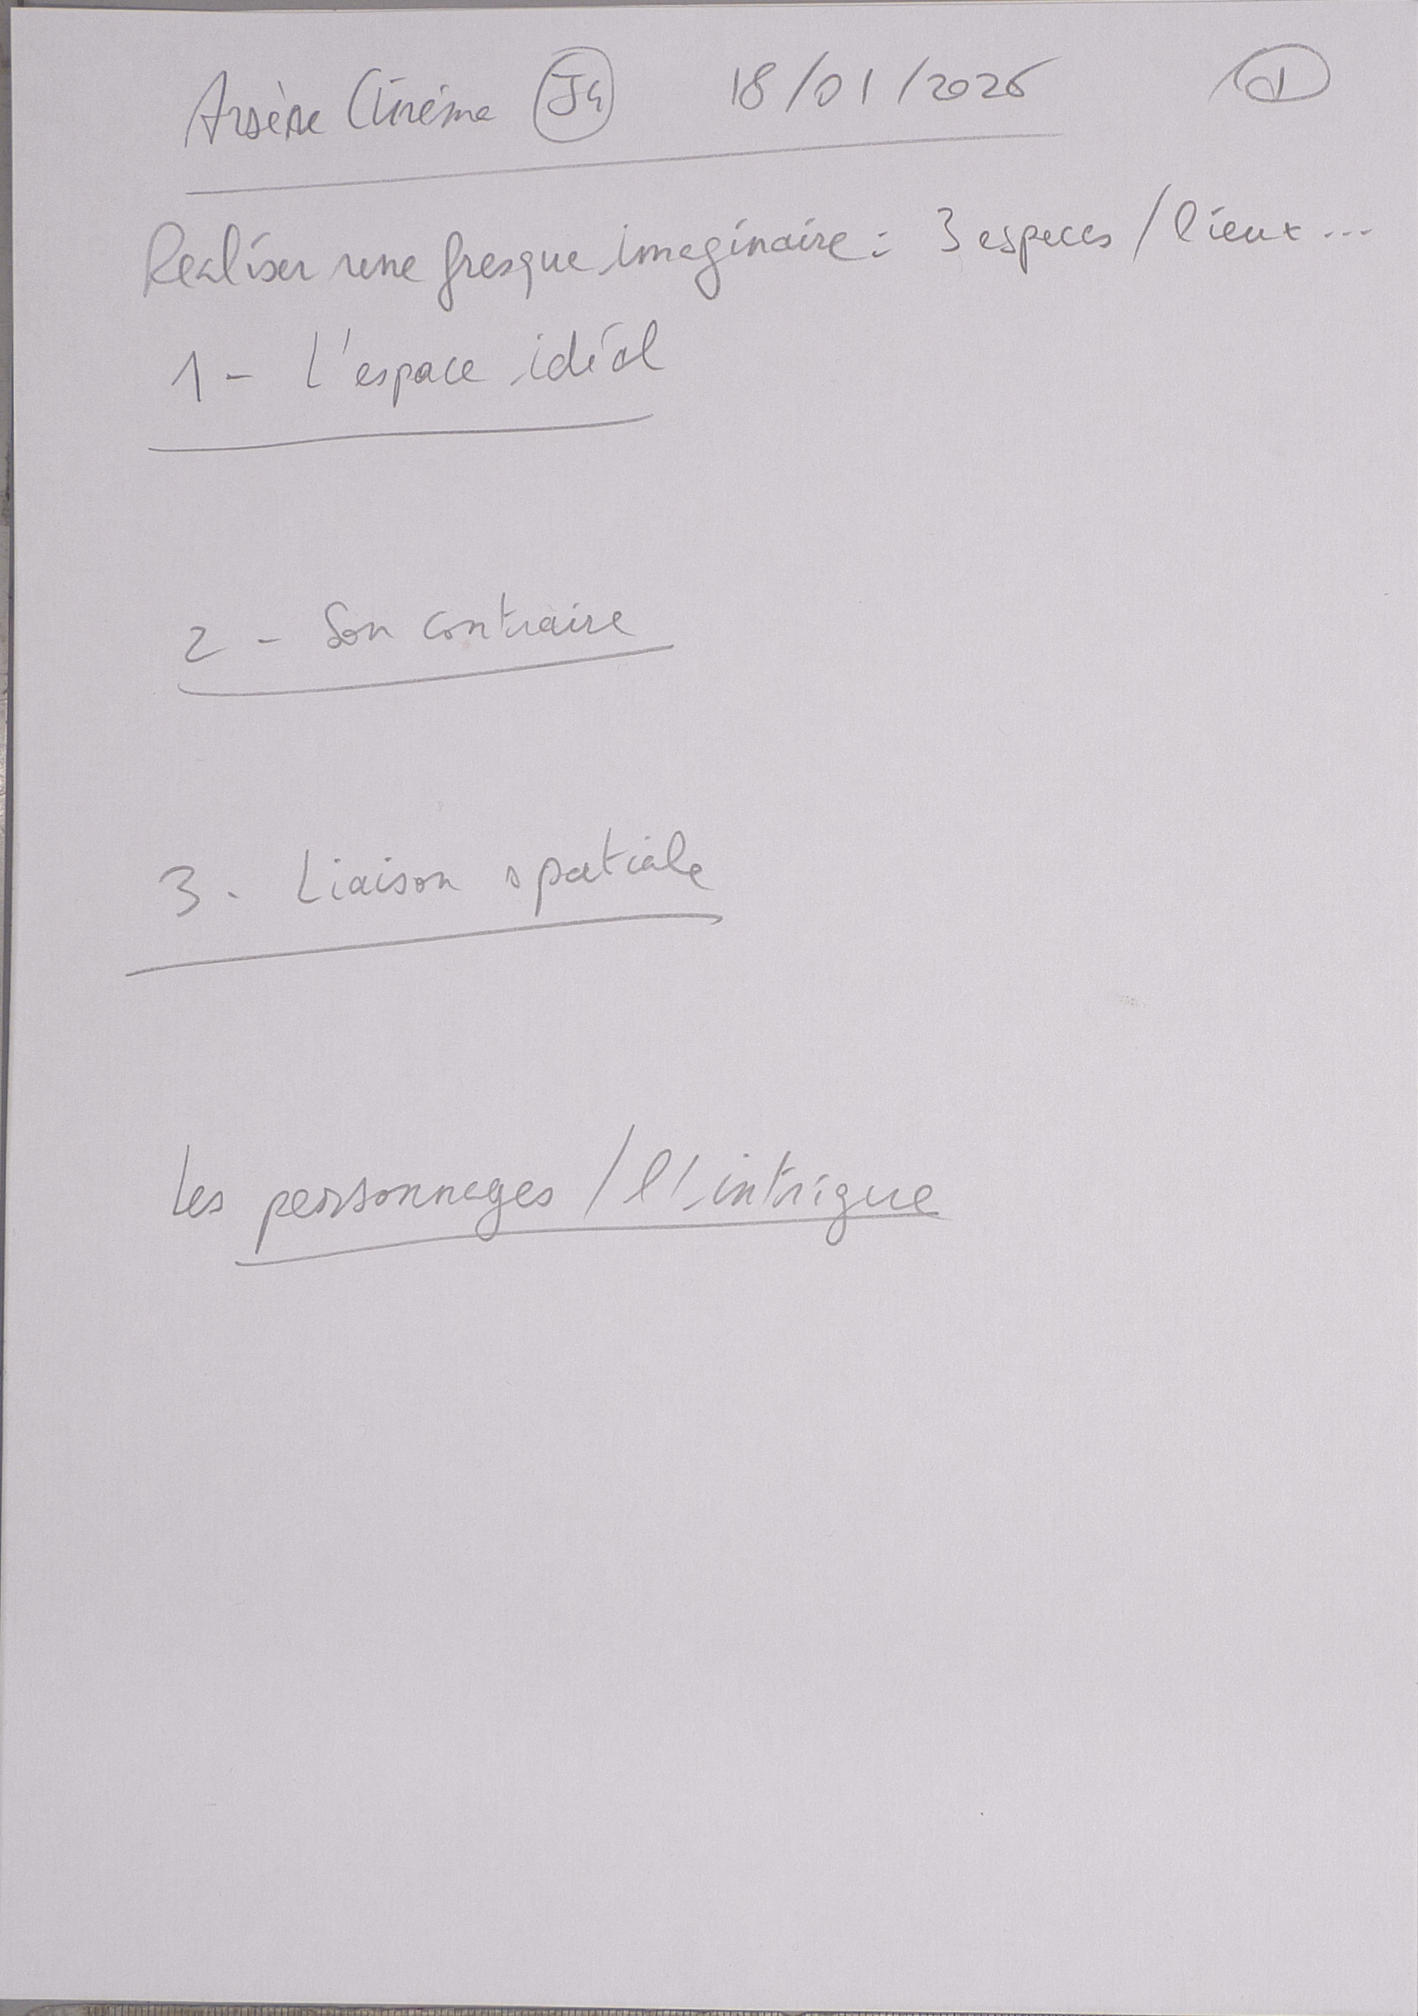 Arsène Cinéma J4 18/01/2026 1
Realiser une fresque imaginaire : 3 espaces / lieux ...
1 - L'espace idéal
2 - Son contraire
3 - Liaison spatiale
Les personnages / l'intrigue